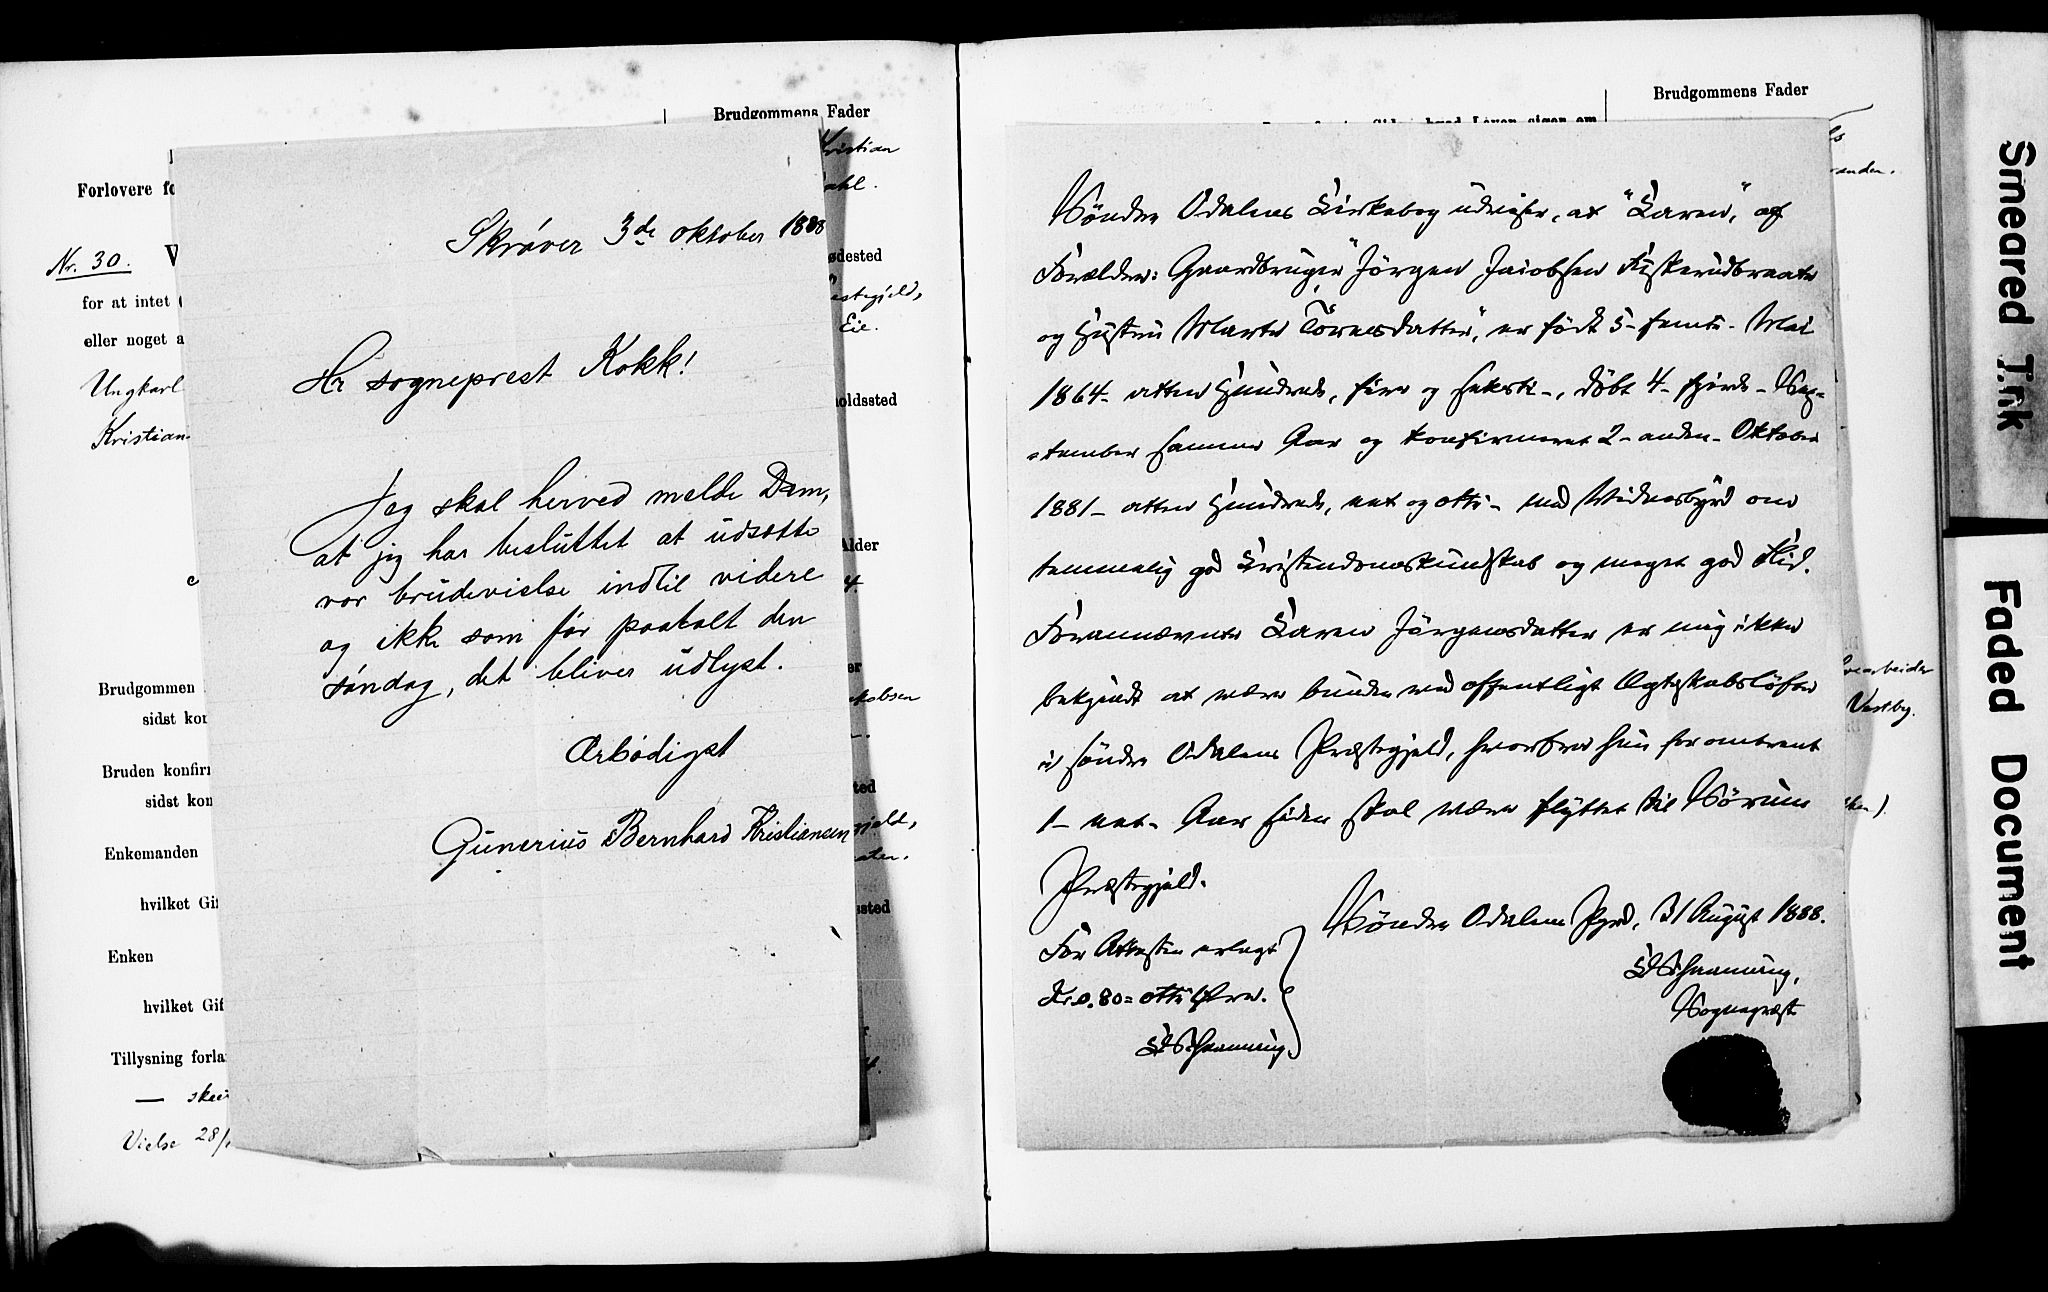 Brudgommens Fader
Kristian
Forlovere fo
Nr. 30. V
for at intet
eller noget a
Ungkarl
Kristian
Brudgommen
sidst kon
Bruden konfirm
sidst kon
Enkemanden
hvilket Gif
Enken
hvilket Gif
Tillysning forla
— skri
Vielse 28/
ødested
æstegjeld,
Eie.
holdssted
Alder
4.
er
akobsen
ted
gjeld,
ssted
4.
Skrøver 3de oktober 1888
Hr sogneprest Kokk!
Jeg skal herved melde Dem,
at jeg har besluttet at udsætte
vor brudevielse indtil videre
og ikke som før paatalt den
søndag, det bliver udlyst.
Ærbødigst
Gunerius Bernhard Kristiansen
Brudgommens Fader
Søndre Odalens Kirkebog udviser, at "Karen", af
Forældre: Gaardbruger "Jörgen Jacobsen Fiskerudbraate
og Hustru Marte Törresdatter", er født 5- femte- Mai
1864- atten Hundrede, fire og seksti-, døbt 4- fjerde- Sep-
-tember samme Aar og konfirmeret 2- anden- Oktober
1881- atten Hundrede, en og otti- med Vidnesbyrd om
temmelig god Kristendomskundskab og meget god Flid.
Forannævnte Karen Jörgensdatter er mig ikke
bekjendt at være bunden ved offentligt Ægteskabsløfte
i søndre Odalens Præstegjeld, hvorfra hun for omtrent
1- et- Aar siden skal være flyttet til Sörum
Præstegjeld.
Søndre Odalens Pgrd, 31 August 1888.
Sognepræst
For Attesten erlagt
Kr. 0.80 = otti Øre.
anden.
arbeider
Vestby.
Smeared Trik
Faded Document